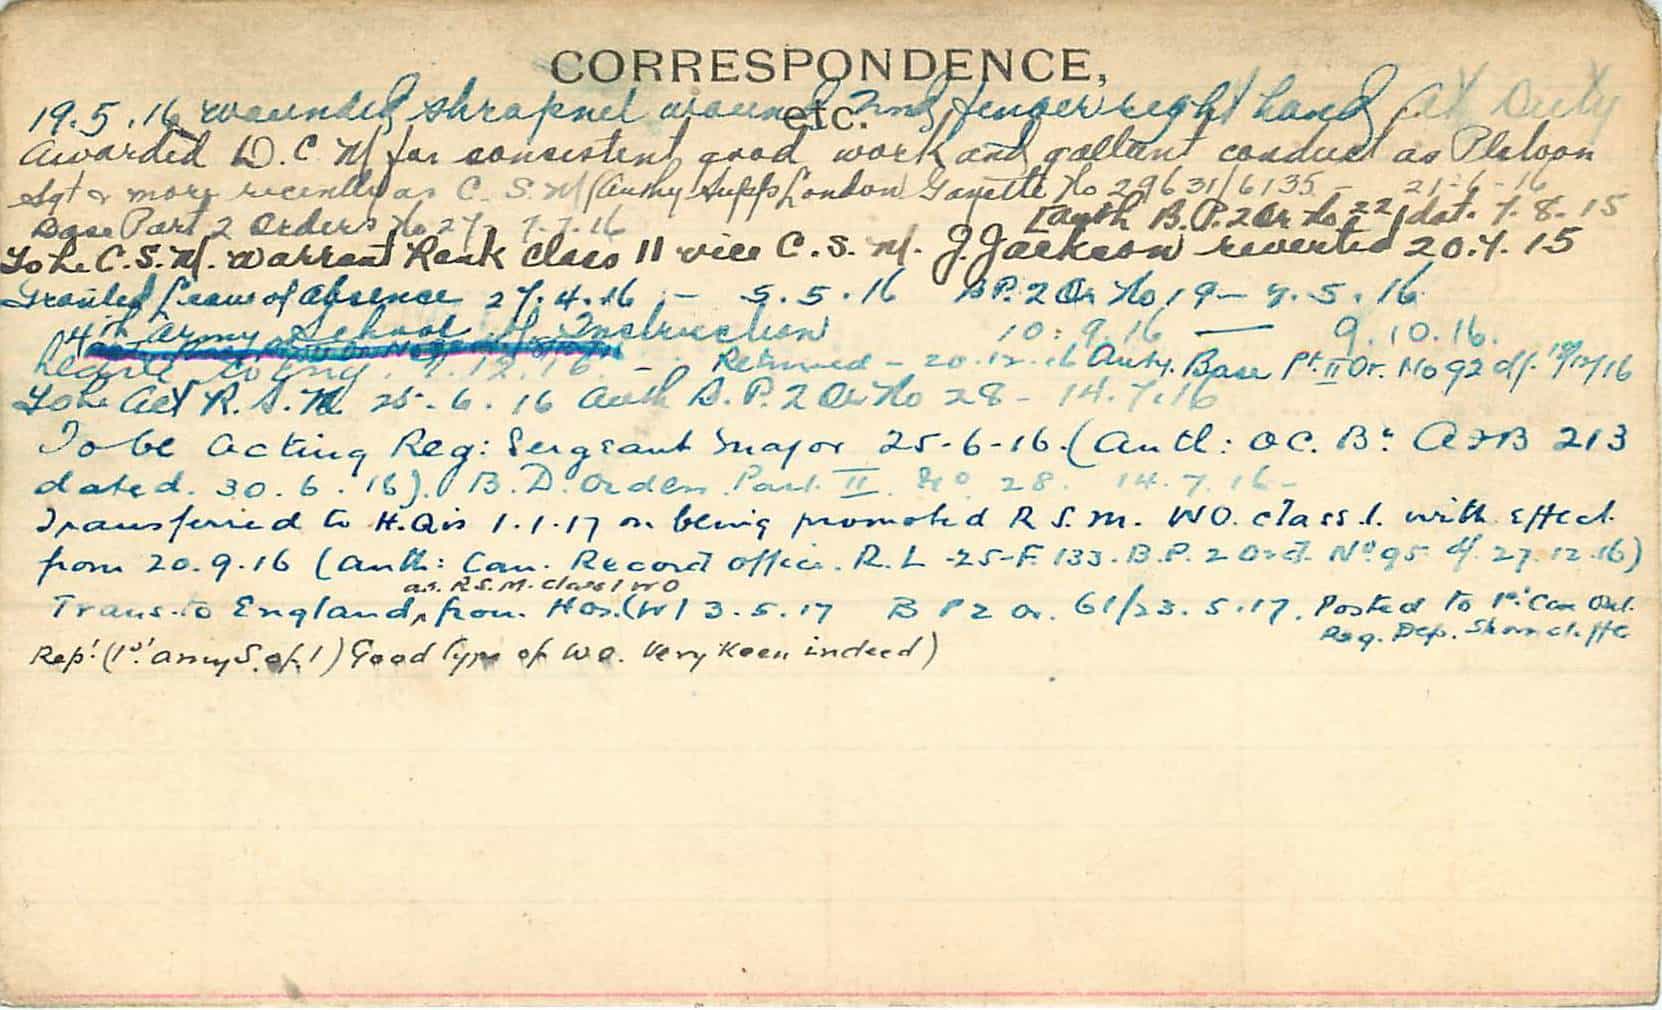 CORRESPONDENCE,
etc.
19.5.16 wounded shrapnel wound 2nd finger right hand, At Duty
Awarded D.C.M. for consistent good work and gallant conduct as Platoon
Sgt & more recently as C.S.M. (Authy Supp London Gazette No 29631/6135 - 21-6-16
Base Part 2 Orders No 27 - 7.7.16
[Auth B.P.2 Or No 22 dat. 7.8.15
To be C.S.M. Warrant Rank Class II vice C.S.M. J. Jackson reverted 20.7.15
Granted Leave of Absence 27.4.16 - 5.5.16 BP. 2 Or No 19 - 7.5.16
4th Army School of Instruction 10.9.16 — 9.10.16.
Leave to Eng. 7.12.16 - Returned - 20.12.16 Auty. Base Pt. II Or. No 92 d/.
To be Act R.S.M. 25.6.16 Auth B.P. 2 Or No 28 - 14.7.16
To be Acting Reg: Sergeant Major 25-6-16. (Auth: OC. Bn A213
dated. 30.6.16). B.D. Orders Part II No 28. 14.7.16 -
Transferred to H.Qrs 1.1.17 on being promoted R.S.M. WO. Class 1. with effect
from 20.9.16 (Auth: Can. Record Office. R.L -25-F 133. B.P. 2 Ord. No 95 d/. 27.12.16)
as. R.S.M. Class 1 WO
Trans. to England, from Hos. (W) 3.5.17 B P 2 Or. 61/23.5.17. Posted to 1st Can
Reg. Dep. Shorncliffe
Rept (1st Army S. of I) Good type of W.O. Very Keen indeed)